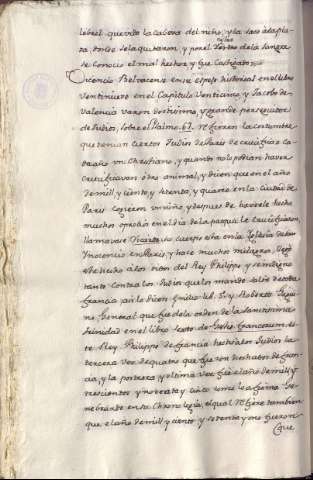 lebrel que vido la cabeza del niño, y la saco a la pla
za, donde se la quitaron, y por el rostro de la sangre
se conocio el mal hechor, y fue castigado.
Vicencio Belvacense en se espejo historial en el libro
veintinueve en el Capitulo Veinticinco, y Jacobo de
Valencia varon doctissimo, y grande perseguidor
de Judios, sobre el Psalmo. 67. refieren la costumbre
que tenian ciertos Judios de Paris de crucificar ca
da año un Christiano, y quando no lo podian haver
crucificavan otro animal, y dicen que en el año
de mill, y ciento, y setenta, y quatro en la ciudad de
Paris cogieron un niño, y despues de haverle hecho
muchos oprobios en el dia de la pasqua le crucificaron,
llamavase Ricardo su cuerpo esta en la Iglesia de los
Inocencios en Paris, y hace muchos milagros, llegó
este hecho a los del Rey Philippo y se indigno
tanto contra los Judios que los mando salir de toda
francia asi lo dicen Emilio lib. 5. y Roberto Gagui
no General que fue de la orden de la santissima
trinidad en el libro sexto de Gestis francorum, es
te Rey Philippo de francia hechó a los Judios la
tercera vez de quatro que fueron hechados de fran
cia, y la postrera, y ultima vez fue el año de mill, y
trescientos, y noventa y cinco como lo afirma Ge
nebrardo en su Chronologia, el qual refiere tambien
que el año de mill y ciento, y setenta y nueve fueron
Que